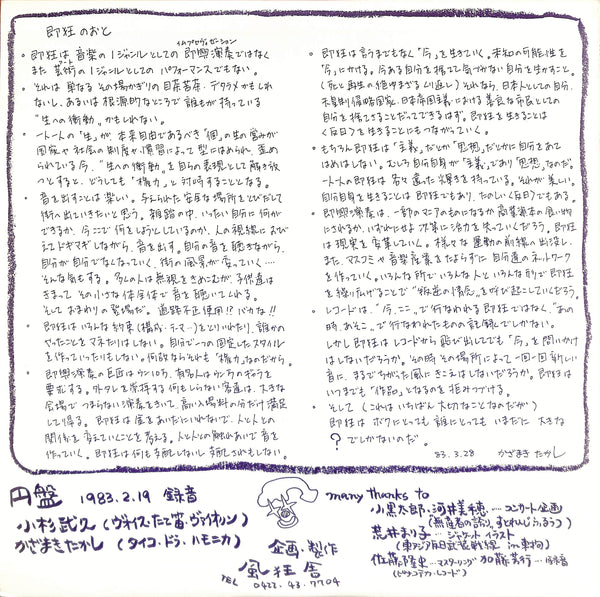 即狂のおと
インプロヴィゼーション
・即狂は音楽の1ジャンルとしての即興演奏ではなく
また芸術の1ジャンルとしてのパフォーマンスでもない。
・それは単なるその場かぎりの自茶苦茶・デタラメかもしれ
ないし、あるいは根源的なところで誰もが持っている
"生への衝動"かもしれない。
・一人一人の「生」が、本来自由であるべき"個"の生の営みが
国家や社会の制度や慣習によって型にはめられ、歪め
られている今、"生への衝動"を自らの表現として解き放
つとすると、どうしても"権力"と対峙することとなる。
・音を出すことは楽しい。与えられた安易な場所をとびだして
街へ出ていきたいと思う。雑踏の中、いったい自分に何が
できるか、今ここで何をしようとしているのか、人の視線におび
えてドギマギしながら、音を出す。自分の音を聴きながら、
自分が自分でなくなっていく、街の風景が変っていく‥‥
そんな気もする。多くの人は無視をきめこむが、子供達は
きまってその小さな体全体で音を聴いてくれる。
そしておまわりの登場だ。道路不正使用!?バカな!!
・即狂はいろんな約束(構成・テーマ…)をとりいれたり、誰かの
やったことをマネたりはしない。自分で一つの固定したスタイル
を作っていったりもしない。何故ならそれも"権力"なのだから。
・即興演奏の巨匠はウンヌら、有名人はウンヌのギャラを
要求する。外タレを崇拝する何もしらない客達は、大きな
会場でつまらない演奏をきいて、高い入場料の分だけ満足
して帰る。即狂は金をあいだにいれないで、人と人との
関係を考えていくことを考える。人と人との触れあいで音を
作っていく。即狂は何も支配しないし支配されもしない。
・即狂は言うまでもなく「今」を生きていく。未知の可能性を
「今」にかける。今ある自分を捨てて気づかない自分を生かすこと。
(死と再生の絶ゆまざるくり返し)それなら、日本人としての自分、
帝国主義における善良な市民としての
自分を捨てさることだってできるはず。即狂を生きることは
〈反日〉を生きることにもつながっていく。
・もちろん即狂は「主義」だとか「思想」だとかに自分をあて
はめはしない。むしろ自分自身が「主義」であり「思想」なのだ。
一人一人の即狂は各々違った輝きを持っている。それが美しい。
自分自身を生きることは即狂でもあり、たのしい〈反日〉でもある。
・即興演奏は、一部のマニアのものになるか商業資本の食い物
にされるか、いずれにせよ次第に活力を失っていくだろう。即狂
は現実を変革していく。様々な運動の前線へ出没し、
また、マスコミや音楽産業をたよらずに自前のネットワーク
を作っていく。いろんな所でいろんな人といろんな形で即狂
を繰り広げることで"叛逆の情念"を呼び起こしていくだろう。
・レコードは"今、ここ"で行なわれる即狂ではなく、"あの
時、あそこ"で行なわれたものの記録でしかない。
しかし即狂はレコードから飛び出してでも「今」を問いかけ
はしないだろうか。その時その場所によって一回一回新しい
音に、まるでちがった風にきこえはしないだろうか。即狂は
いつまでも"作品"となるのを拒みつづける。
・そして(これはいちばん大切なことなのだが)
即狂はボクにとっても誰にとってもいまだに大きな
?でしかないのだ。
83.3.28 かざまきたかし
円盤 1983.2.19 録音
小杉武久(ヴォイス・たて笛・ヴァイオリン)
かざまきたかし(タイコ・ドラ・ハモニカ)
企画・製作
風狂舎
TEL 0422.43.7704
many thanks to
小黒太郎・河井美穂…コンサート企画
荒井まり子…ジャケットイラスト
(東アジア反日武装戦線 in 東拘)
佐藤隆史…マスターリング 加藤芸行…録音
(ピナコテカ・レコード)